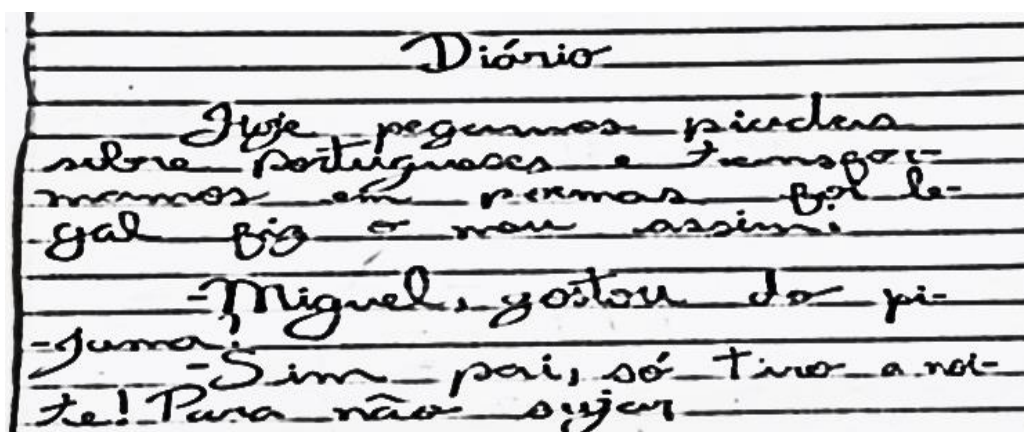 Diário
Hoje pegamos piadas
sobre portugueses e transfor-
mamos em poemas foi le-
gal fiz o meu assim:
-Miguel, gostou do pi-
-jama?
-Sim pai, só tiro a noi-
te! Para não sujar